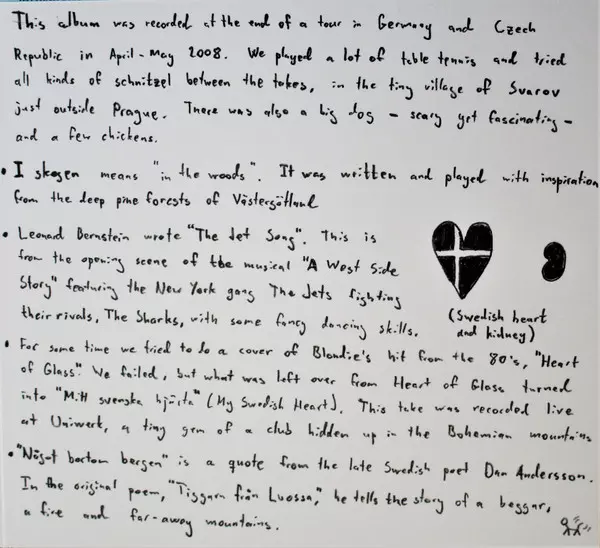 This album was recorded at the end of a tour in Germany and Czech
Republic in April-May 2008. We played a lot of table tennis and tried
all kinds of schnitzel between the takes, in the tiny village of Svarov
just outside Prague. There was also a big dog - scary yet fascinating -
and a few chickens.
• I skogen means "in the woods". It was written and played with inspiration
from the deep pine forests of Västergötland
• Leonard Bernstein wrote "The Jet Song". This is
from the opening scene of the musical "A West Side
Story" featuring the New York gang The Jets fighting
their rivals, The Sharks, with some fancy dancing skills.
(Swedish heart
and kidney)
• For some time we tried to do a cover of Blondie's hit from the 80's, "Heart
of Glass". We failed, but what was left over from Heart of Glass turned
into "Mitt svenska hjärta" (My Swedish Heart). This take was recorded live
at Uniwerk, a tiny gem of a club hidden up in the Bohemian mountains
• "Något bortom bergen" is a quote from the late Swedish poet Dan Andersson.
In the original poem, "Tiggarn från Luossa," he tells the story of a beggar,
a fire and far-away mountains.